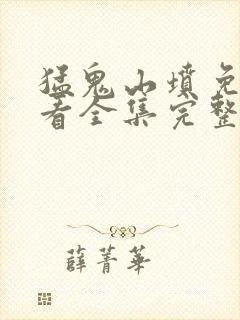 猛鬼山墳免
看全集完整
薛菁華